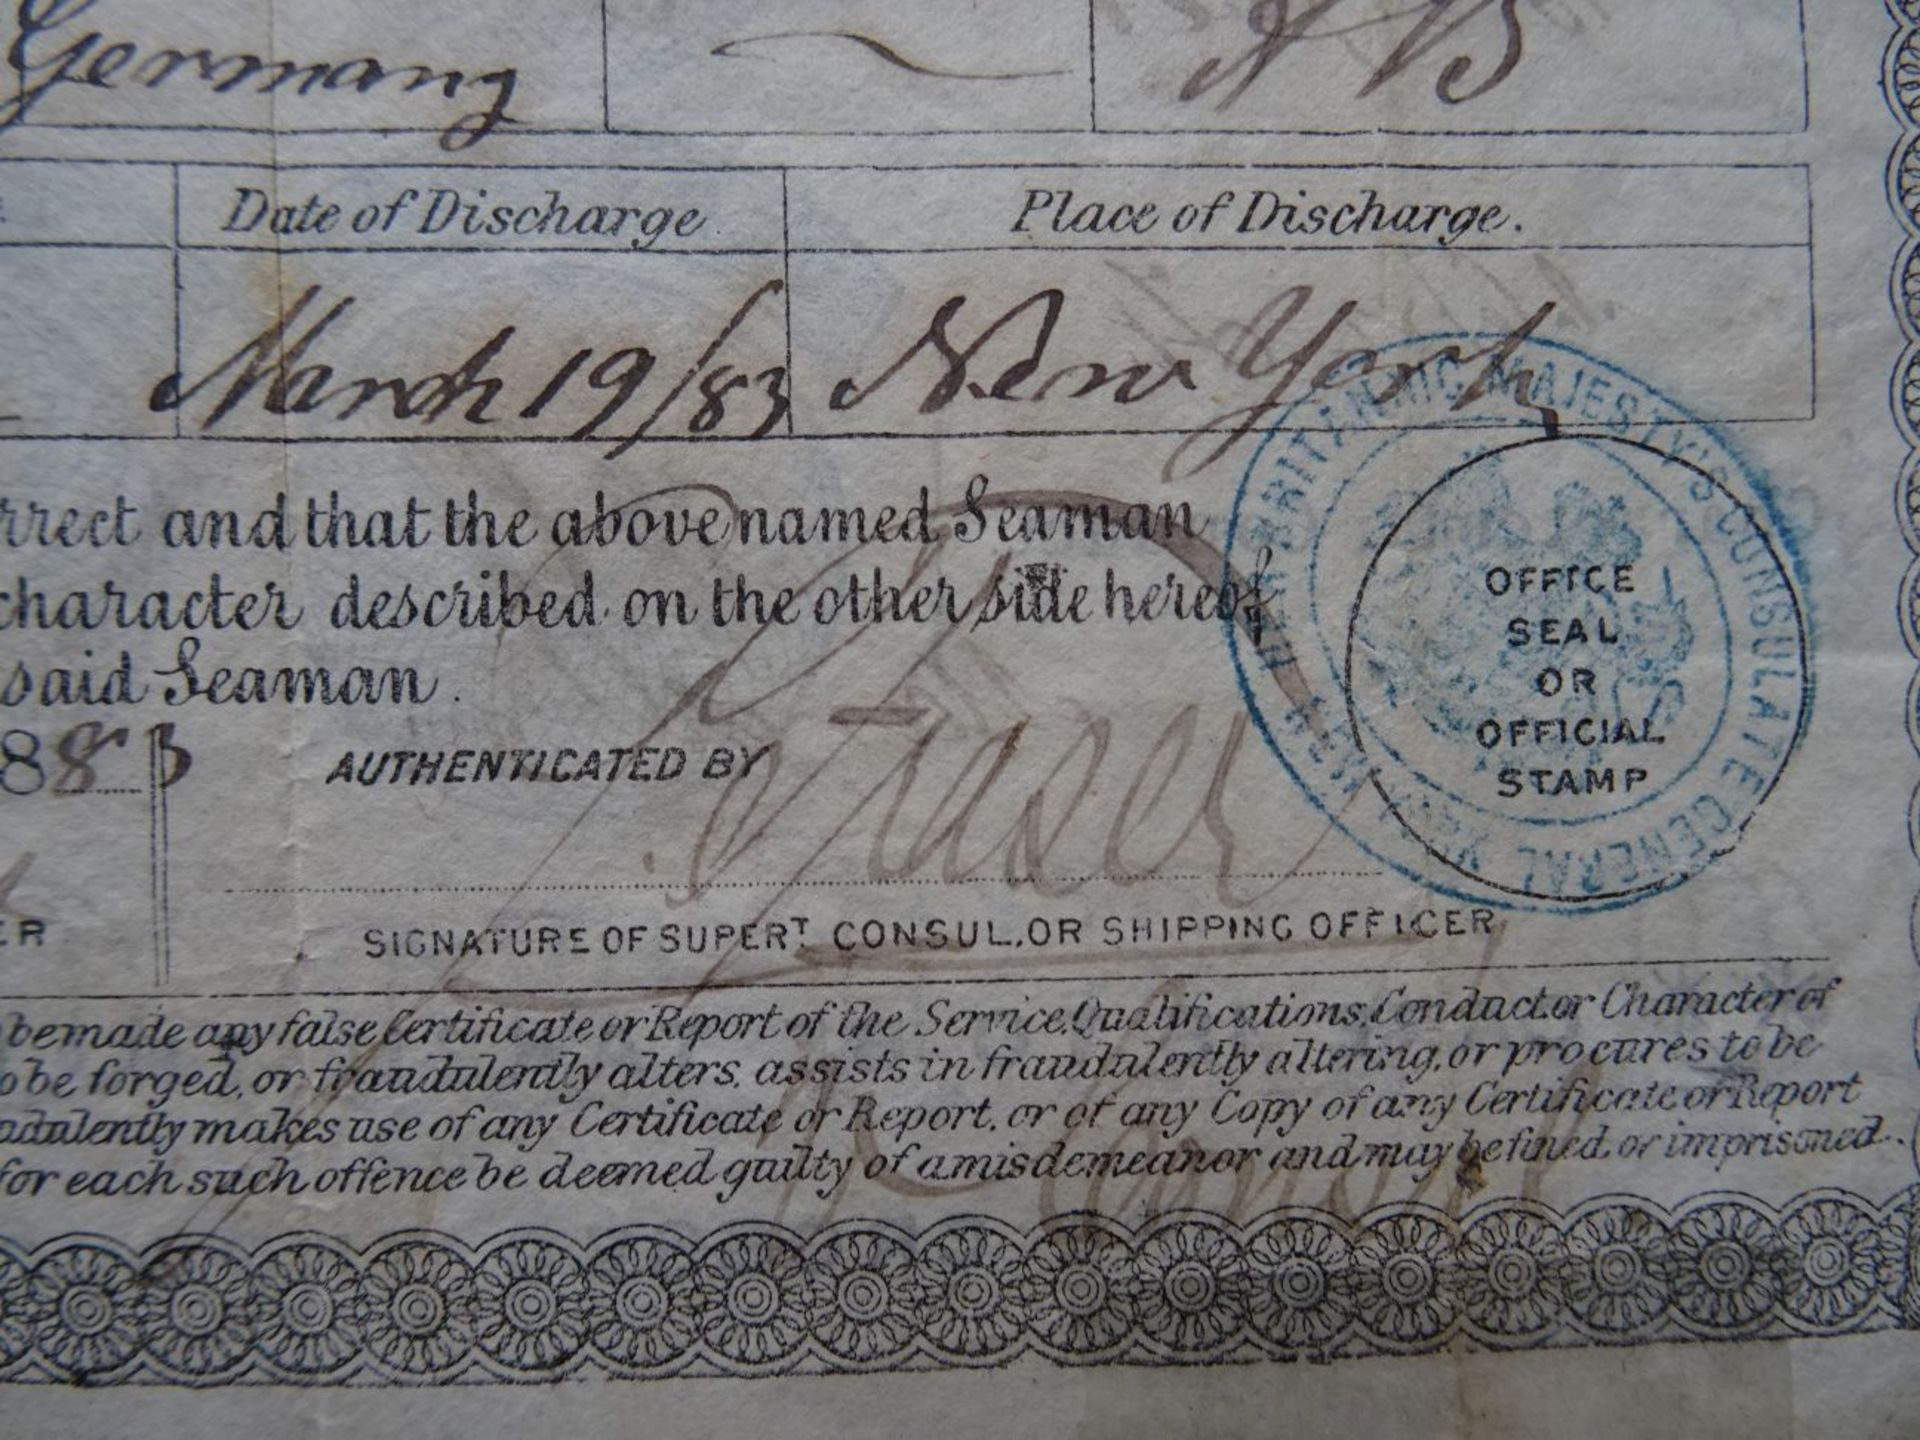 Germany A B
Date of Discharge. Place of Discharge.
March 19/83 New York
rrect and that the above named Seaman
character described on the other side hereof
said Seaman.
883 AUTHENTICATED BY Fraser
ER SIGNATURE OF SUPERT. CONSUL, OR SHIPPING OFFICER
HER BRITANNIC MAJESTY'S CONSULATE GENERAL NEW YORK
OFFICE
SEAL
OR
OFFICIAL
STAMP
be made any false Certificate or Report of the Service, Qualifications, Conduct or Character of
o be forged, or fraudulently alters, assists in fraudulently altering, or procures to be
udulently makes use of any Certificate or Report, or of any Copy of any Certificate or Report
for each such offence be deemed guilty of a misdemeanor and may be fined or imprisoned.